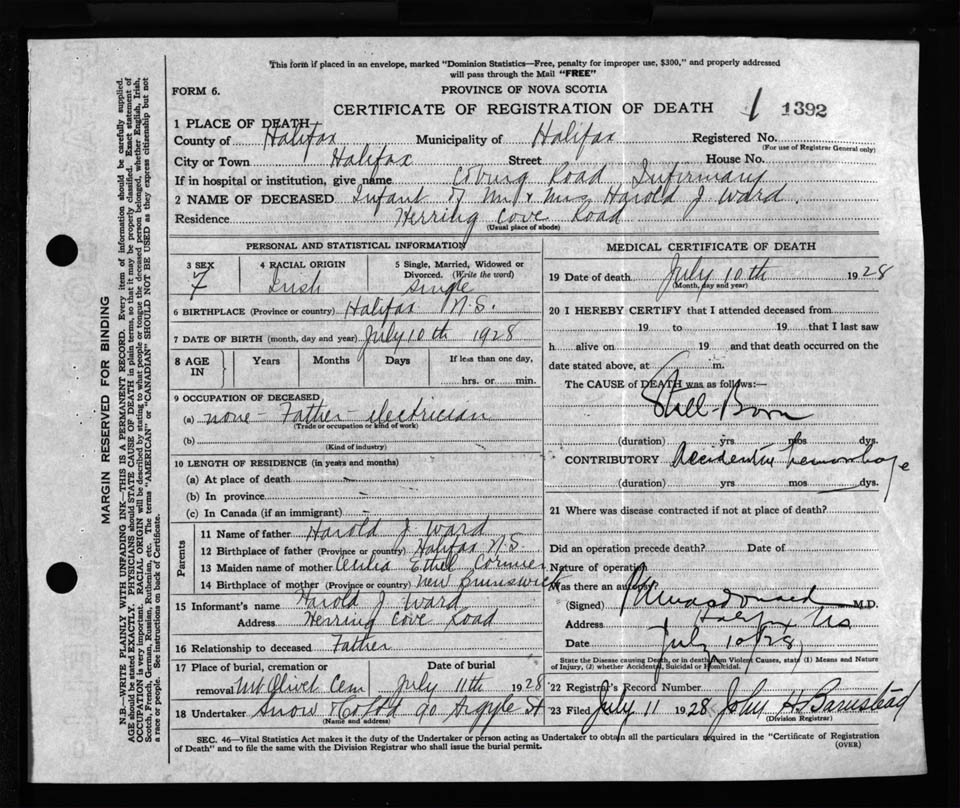 This form if placed in an envelope, marked "Dominion Statistics—Free, penalty for improper use, $300," and properly addressed
will pass through the Mail "FREE"
FORM 6.
PROVINCE OF NOVA SCOTIA
CERTIFICATE OF REGISTRATION OF DEATH
1 1392
1 PLACE OF DEATH
County of Halifax Municipality of Halifax Registered No.
(For use of Registrar General only)
City or Town Halifax Street House No.
If in hospital or institution, give name Coburg Road Infirmary
2 NAME OF DECEASED Infant of Mr & Mrs Harold J Ward.
Residence Herring Cove Road
(Usual place of abode)
PERSONAL AND STATISTICAL INFORMATION
3 SEX 4 RACIAL ORIGIN 5 Single, Married, Widowed or
Divorced. (Write the word)
F Irish Single
6 BIRTHPLACE (Province or country) Halifax N.S.
7 DATE OF BIRTH (month, day and year) July 10th 1928
8 AGE IN Years Months Days If less than one day,
hrs. or min.
9 OCCUPATION OF DECEASED
(a) none - Father - electrician
(Trade or occupation or kind of work)
(b)
(Kind of industry)
10 LENGTH OF RESIDENCE (in years and months)
(a) At place of death
(b) In province
(c) In Canada (if an immigrant)
Parents
11 Name of father Harold J. Ward
12 Birthplace of father (Province or country) Halifax N.S.
13 Maiden name of mother Ethel Cormier
14 Birthplace of mother (Province or country) New Brunswick
15 Informant's name Harold J Ward
Address Herring Cove Road
16 Relationship to deceased Father
17 Place of burial, cremation or Date of burial
removal Mt Olivet Cem July 11th 1928
18 Undertaker Snow & Co Ltd 90 Argyle St
(Name and address)
MEDICAL CERTIFICATE OF DEATH
19 Date of death July 10th 1928
(Month, day and year)
20 I HEREBY CERTIFY that I attended deceased from
19 to 19 that I last saw
h alive on 19 and that death occurred on the
date stated above, at m.
The CAUSE of DEATH was as follows:—
Still-Born
(duration) yrs mos dys.
CONTRIBUTORY Accidental hemorrhage
(duration) yrs mos dys.
21 Where was disease contracted if not at place of death?
Did an operation precede death? Date of
Nature of operation
Was there an autopsy
(Signed) Macdonald M.D.
Address Halifax NS
Date July 10/28
State the Disease causing Death, or in deaths from Violent Causes, state (1) Means and Nature
of Injury, (2) whether Accidental, Suicidal or Homicidal.
22 Registrar's Record Number
23 Filed July 11 1928 John H Barnstead
(Division Registrar)
SEC. 46—Vital Statistics Act makes it the duty of the Undertaker or person acting as Undertaker to obtain all the particulars required in the "Certificate of Registration
of Death" and to file the same with the Division Registrar who shall issue the burial permit.
(OVER)
MARGIN RESERVED FOR BINDING
N.B.—WRITE PLAINLY WITH UNFADING INK—THIS IS A PERMANENT RECORD. Every item of information should be carefully supplied.
AGE should be stated EXACTLY. PHYSICIANS should STATE CAUSE OF DEATH in plain terms, so that it may be properly classified. Exact statement of
OCCUPATION is very important. RACIAL ORIGIN will be described by stating to what people or tongue the deceased person belonged, whether English, Irish,
Scotch, French, German, Russian, Ruthenian, etc. The terms "AMERICAN" or "CANADIAN" SHOULD NOT BE USED as they express citizenship but not
a race or people. See instructions on back of Certificate.